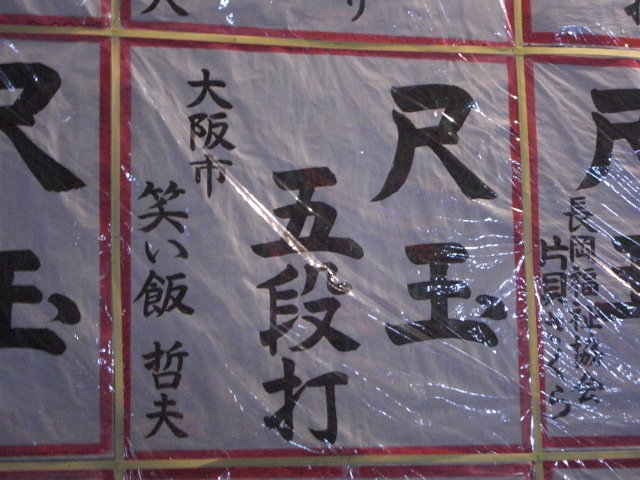 尺玉
長岡福祉協会
片貝さくら
尺玉
五段打
大阪市
笑い飯 哲夫
尺玉